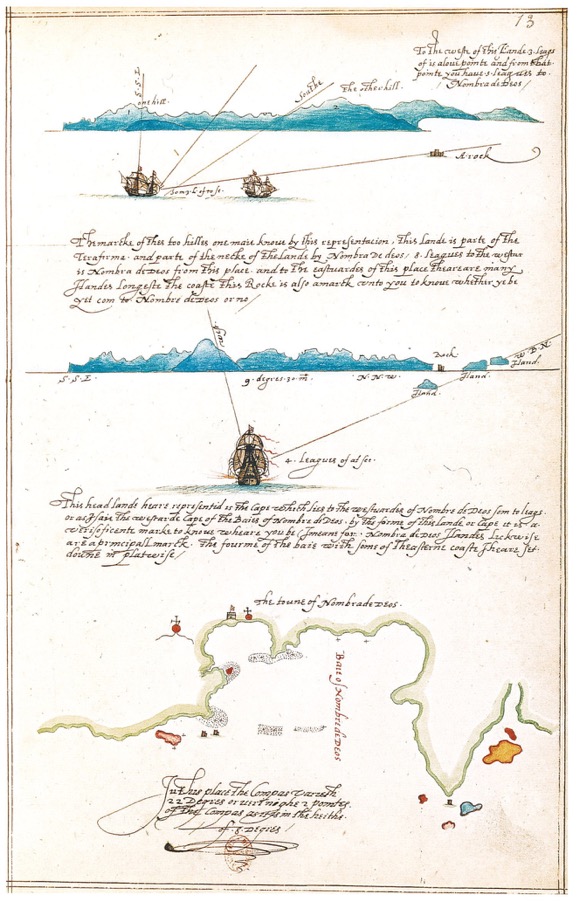 13
To the weste of this Lande 3 leags
of is alowe pointe and from that
pointe you have 5 leagues to
Nombra de deos
S. S. E.
one hill.
Southe
The other hill.
A rock
The marke of thes too hilles one maie knowe by this representacion, this Lande is parte of the
Terafirme. and parte of the necke of the Lande by Nombra De deos / 8. Leagues to the westwar
is Nombra de Deos from this place. and to the eastwardes of this place theare are many
Ilandes Longeste the coaste this Rocke is also a marck unto you to knowe whether ye be
yet com to Nombre de Deos or no
Rock
W. B. N.
Iland.
Iland.
S. S. E.
9. degres. 30. m
N. N. W.
Iland.
4. Leagues of at see.
This head lande heare representid is the Cape which lies to the westwardes of Nombre de Deos som to leags
or as I saie the westwarde Cape of the Baie of Nombre de Deos. by the forme of this lande or Cape it is a
verie suficente marke to know wheare you be. Nombra de Deos Ilandes Luckwise
are a principall marck. The fourme of the baie with som of the easterne coaste I heare set
downe in platwise
The towne of Nombra de Deos.
Baie of Nombra de Deos
In this place the Compas varieth
22 Degres or verie nighe 2 pointes
of the Compas as it is in the heithe
of. 8 Degres